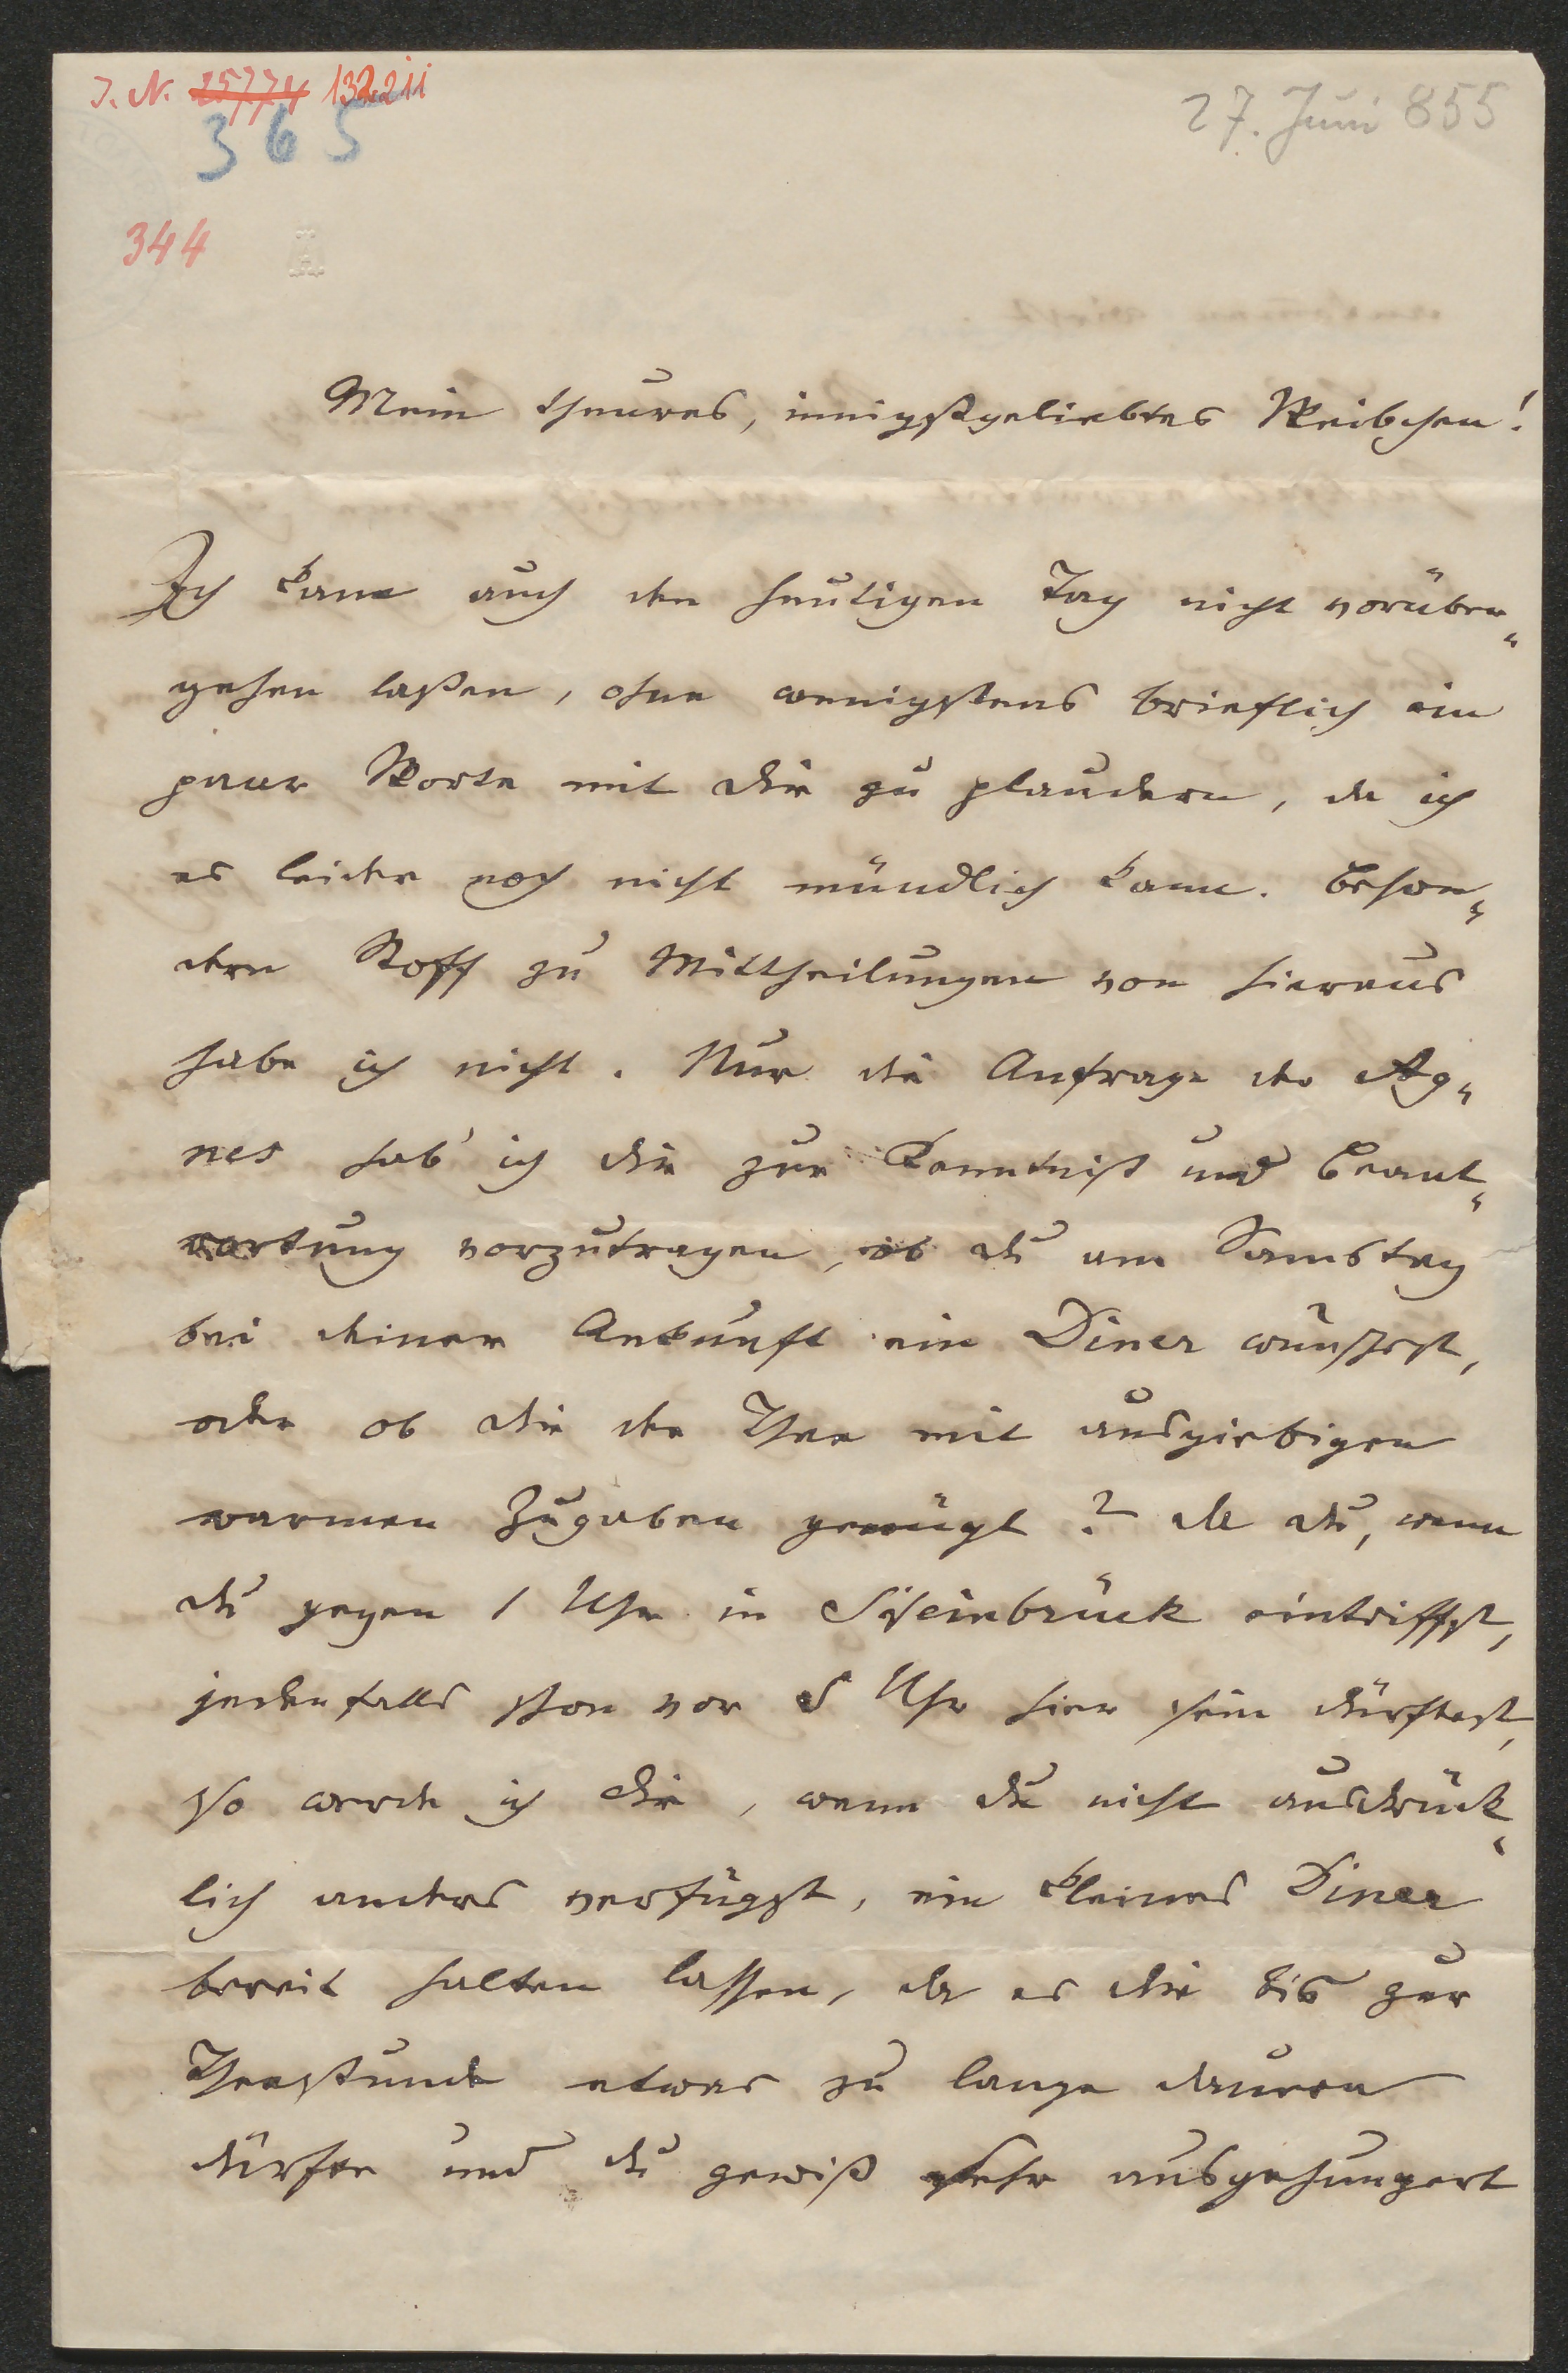 J. N. 25774 132211
365
27. Juni 855
344
Mein theures, innigstgeliebtes Weibchen!
Ich kann auch den heutigen Tag nicht vorüber„
gehen laßen, ohne wenigstens brieflich ein
paar Worte mit dir zu plaudern, da ich
es leider noch nicht mündlich kann. Beson„
dern Stoff zu Mittheilungen von hieraus
habe ich nicht. Nur die Anfrage der Ag„
nes hab' ich dir zur Kenntniß und Beant„
wortung vorzutragen, ob du am Samstag
bei deiner Ankunft ein Diner wünschest,
oder ob dir der Thee mit ausgiebigen
warmen Zugaben genügt? da du, wenn
du gegen 1 Uhr in Steinbrück eintriffst,
jedenfalls schon vor 5 Uhr hier sein dürftest,
so werde ich dir, wenn du nicht ausdrück„
lich anders verfügst, ein kleines Diner
bereit halten lassen, da es dir bis zur
Theestunde etwas zu lange dauern
dürfte und du gewiß sehr ausgehungert